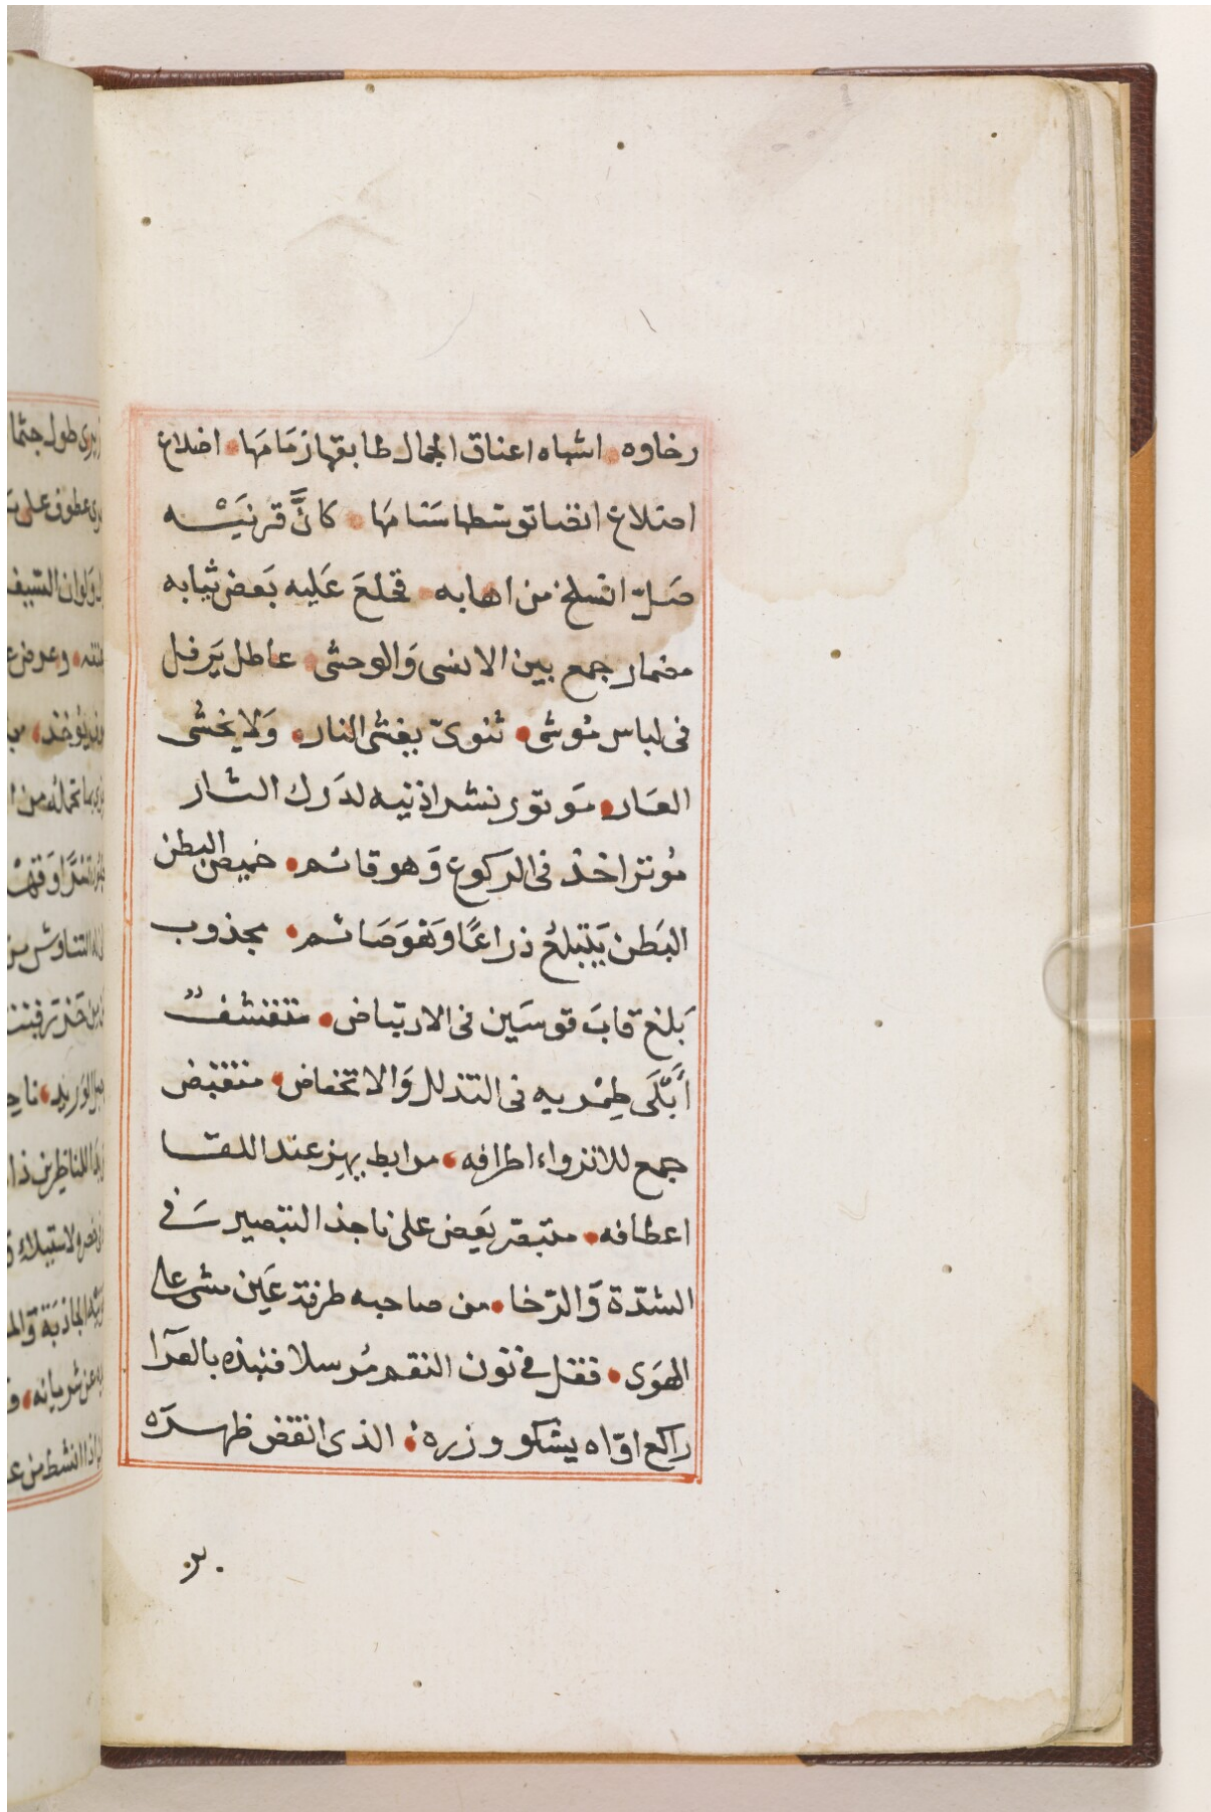 رخاوه اشباه اعناق الجمال طابقها زمَامَها اضلاع
اضلاع انضا توسطها سَنامَها كانَّ قرنَيْه
صَلّ انسلخ من اهابه فخلعَ عَليه بَعض ثيابه
مضمار جمع بين الانسى وَالوحشى عاطل يَرفل
فى لباس مُوشى ثنوىّ يغشى النار وَلا يخشى
العَار مَوتور نشر اذنيه لدَرك الثار
مُوتر اخذ فى الركوع وَهو قائم خميص البطن
البَطن يَبتلعُ ذراعًا وَهوَ صَائم مجذوب
بَلغ قابَ قوسَين فى الارتياض متقشفٌ
أَبْلَى طِمْريه فى التذلل وَالانخفاض منقبض
جمع للانزواء اطرافه مرابط يهز عند اللقا
اعطافه متبصّر يَعض على ناجذ التبصير فى
الشدّة وَالرّخا من صاحبه طرفة عَين مشى على
الهَوى فنون النقم مُرسلا فنبذه بالعَرا
راكع اوّاه يشكو وزره الذى انقض ظهره